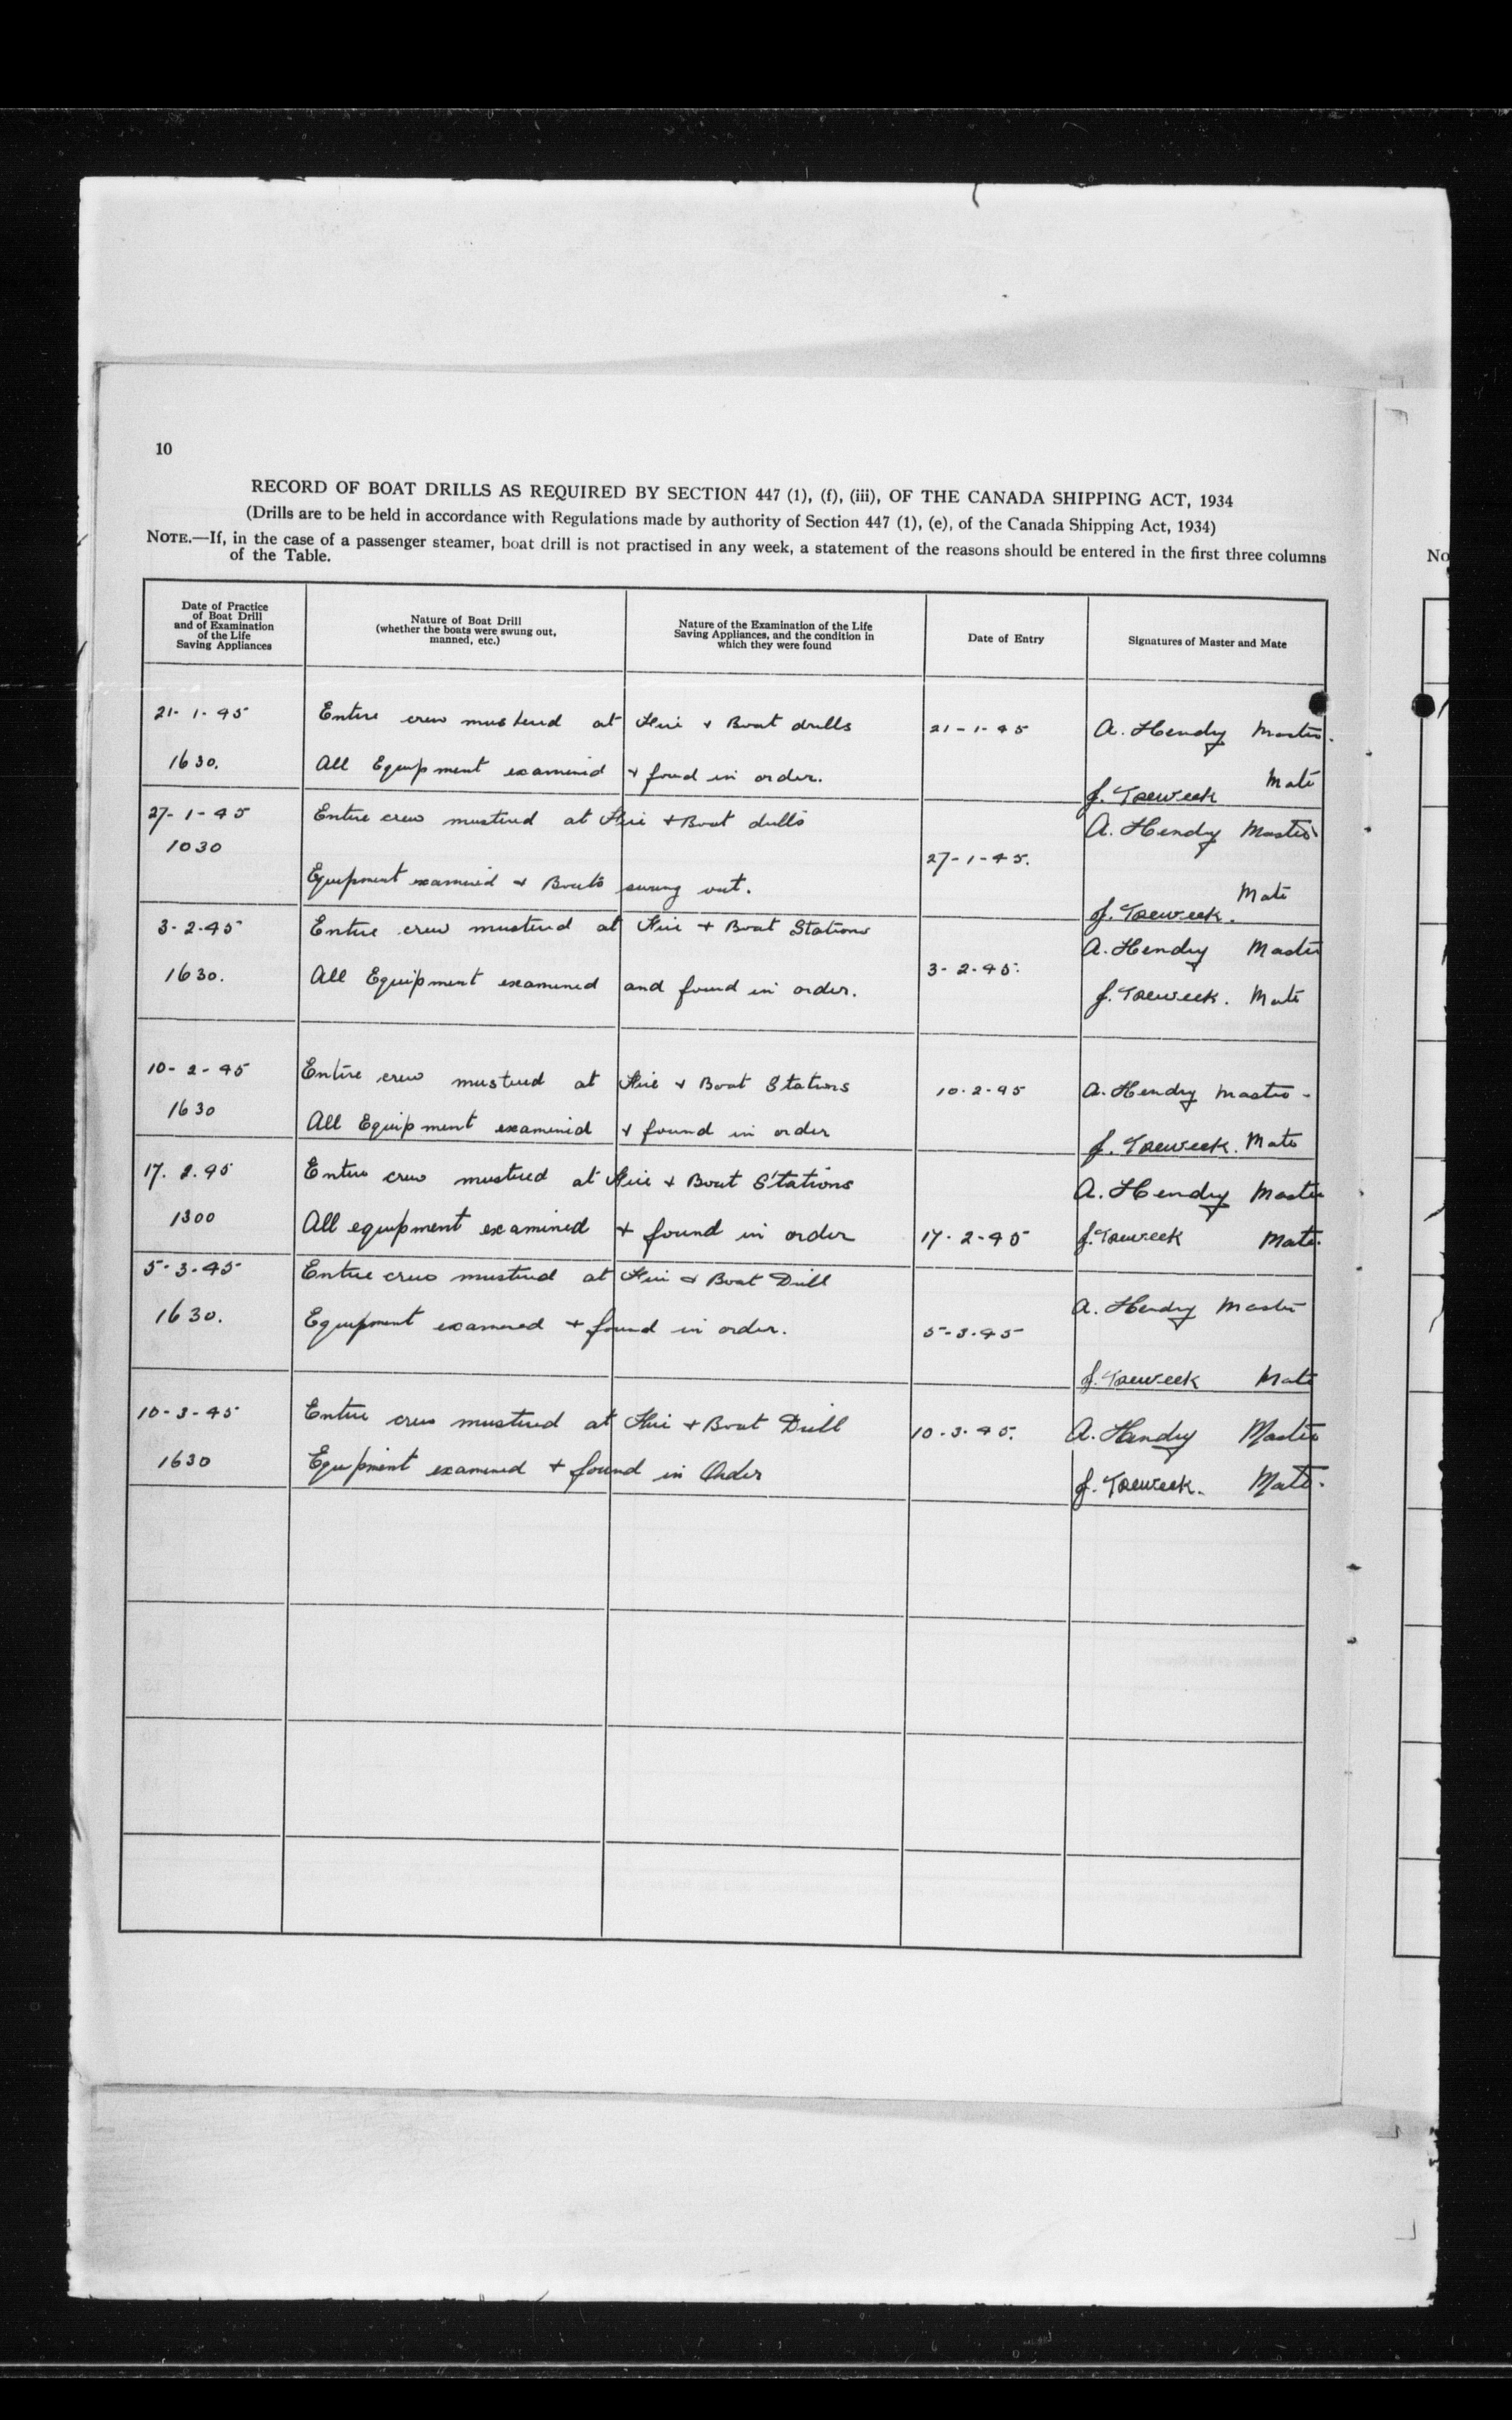 10
RECORD OF BOAT DRILLS AS REQUIRED BY SECTION 447 (1), (f), (iii), OF THE CANADA SHIPPING ACT, 1934
(Drills are to be held in accordance with Regulations made by authority of Section 447 (1), (e), of the Canada Shipping Act, 1934)
NOTE.—If, in the case of a passenger steamer, boat drill is not practised in any week, a statement of the reasons should be entered in the first three columns
of the Table.
No
Date of Practice
of Boat Drill
and of Examination
of the Life
Saving Appliances
Nature of Boat Drill
(whether the boats were swung out,
manned, etc.)
Nature of the Examination of the Life
Saving Appliances, and the condition in
which they were found
Date of Entry
Signatures of Master and Mate
21-1-45 Entire crew mustered at Fire + Boat drills 21-1-45 A. Hendry Master.
1630. All Equipment examined + found in order. J. Treweek Mate
27-1-45 Entire crew mustered at Fire + Boat drills A. Hendry Master
1030 27-1-45.
Equipment examined + Boats swung out. J. Treweek. Mate
3-2-45 Entire crew mustered at Fire + Boat Stations A. Hendry Master
1630. All Equipment examined and found in order. 3-2-45. J. Treweek. Mate
10-2-45 Entire crew mustered at Fire + Boat Stations 10.2-45 A. Hendry Master -
1630 All Equipment examined + found in order J. Treweek. Mate
17.2.45 Entire crew mustered at Fire + Boat Stations A. Hendry Master
1300 All equipment examined + found in order 17-2-45 J. Treweek Mate.
5-3-45 Entire crew mustered at Fire & Boat Drill A. Hendry Master
1630. Equipment examined + found in order. 5-3-45
J. Treweek Mate
10-3-45 Entire crew mustered at Fire + Boat Drill 10-3-45. A. Hendry Master
1630 Equipment examined + found in Order J. Treweek. Mate.